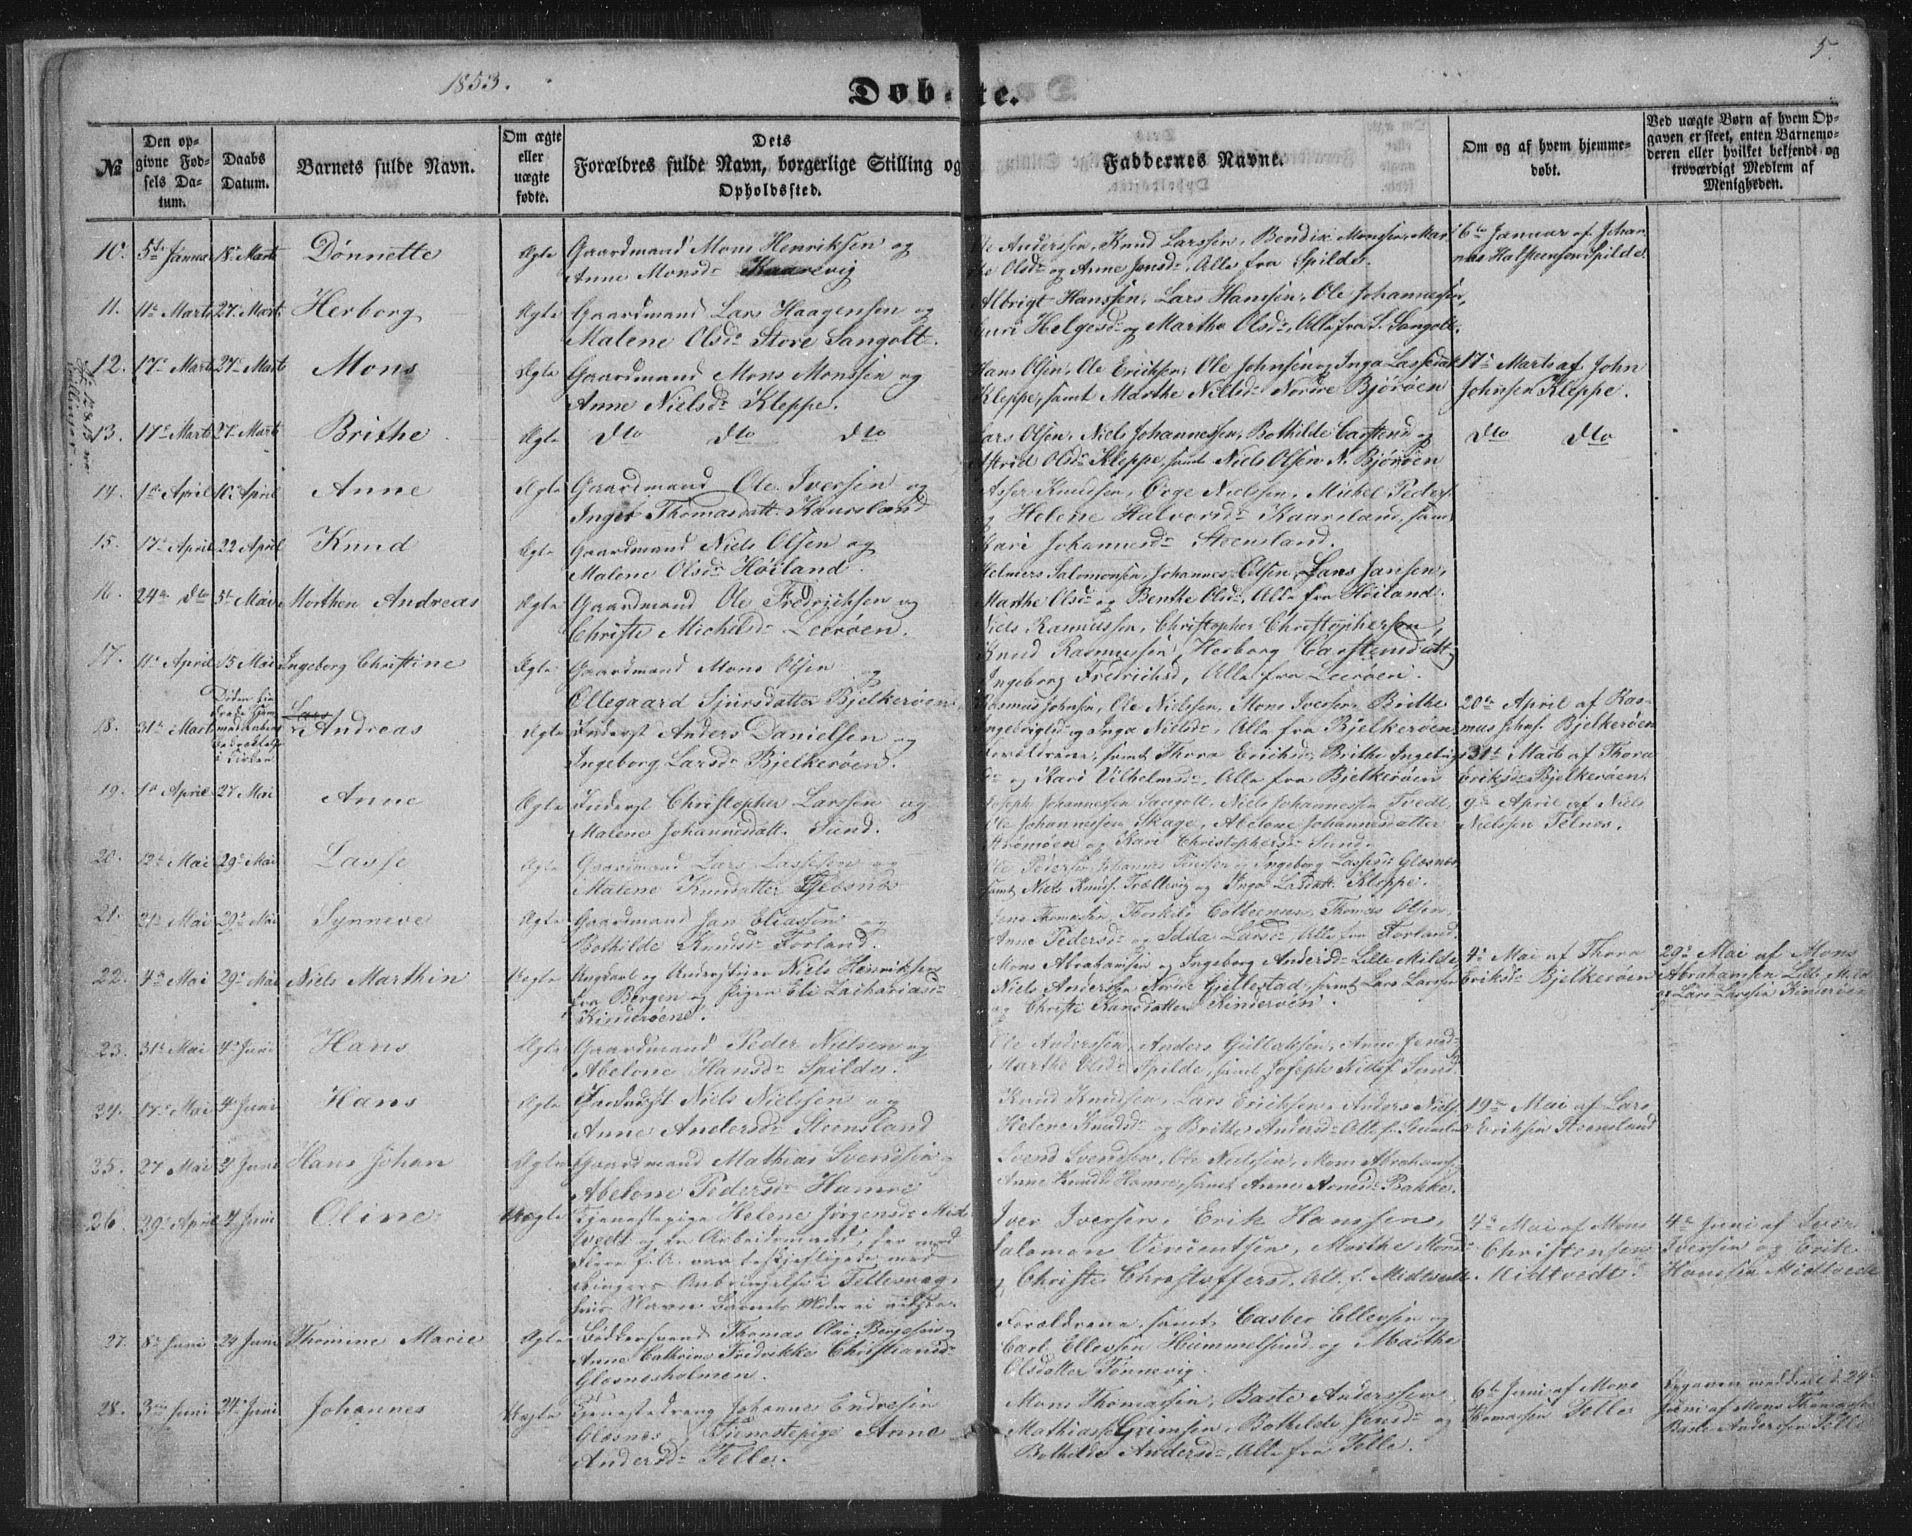 1853.
5
Døbte.
№
Den opgivne Fødsels Datum.
Daabs Datum.
Barnets fulde Navn.
Om ægte eller uægte fødte.
Dets Forældres fulde Navn, borgerlige Stilling og Opholdssted.
Faddernes Navne.
Om og af hvem hjemmedøbt.
Ved uægte Børn af hvem Opgaven er skeet, enten Barnemoderen eller hvilket bekjendt og troværdigt Medlem af Menigheden.
10. 5te Januar 18. Marts Dønnette Ægte Gaardmand Mons Henriksen og
Anne Monsdr
Anderssen, Knud Larssen, Bendix Monssen,
Olsdr og Anne Jensdr, Alle fra Spilde.
6te Januar af Johannes Halsteensen Spilde.
11. 11te Marts 27. Marts Herborg Ægte Gaardmand Lars Haagensen og
Malene Olsdr Store Sangolt.
Albrigt Hanssen, Lars Hanssen, Ole Johannessen,
Guri Helgesdr og Marthe Olsdr, Alle fra S. Sangolt.
12. 17de Marts 27de Marts Mons Ægte Gaardmand Mons Monssen og
Anne Nielsdr Kleppe.
Hans Olsen, Ole Erichsen, Ole Johnsen og Inga Lassedatt
Kleppe, samt Marthe Nielsdr Nordre Bjørøen
17de Marts af John
Johnsen Kleppe.
13. 17de Marts 27de Marts Brithe Ægte Dto Dto Dto
Lars Olsen, Niels Johannessen, Bothilde Carstensd og
Astrid Olsdr Kleppe, samt Niels Olsen N. Bjørøen
Dto Dto
14. 1ste April 10. April Anne Ægte Gaardmand Ole Iversen og
Inger Thomasdatt. Kaarsland
Asser Knudssen, Nielssen, Michel Peders.
og Helene Halvorsdr Kaarsland, samt
Kari Johannesdr Steensland.
15. 17de April 22 April Knud Ægte Gaardmand Niels Olsen og
Malene Olsdr Høiland.
Helmers Salomonsen, Johannes Olsen, Lars Jansen,
Marthe Olsdr og Benthe Olsdr, Alle fra Høiland.
16. 24de Dto 5te Mai Morthen Andreas Ægte Gaardmand Ole Fredriksen og
Christi Michelsdr Leerøen.
Niels Rasmussen, Christopher Christophersen,
Knud Rasmussen, Herborg Carstensdatt,
Ingeborg Fredrichsd, Alle fra Leerøen.
17. 11te April 15 Mai Ingeborg Christine Ægte Gaardmand Mons Olsen og
Ollegaard Sjursdatter Bjelkerøen
Rasmus Johnsen, Ole Nielssen, Mons Iversen, Brithe
Ingebrigtsd og Inga Nielsdr, Alle fra Bjelkerøen.
20de April af Rasmus Johns. Bjelkerøen
18. 31te Marts Andreas Ægte Inderst Anders Danielssen og
Ingeborg Larsdr Bjelkerøen.
Forældrene, samt Thora Erichsdr, Brithe
og Kari Vilhelmsdr, Alle fra Bjelkerøen
31te Marts af Thora
Eriksdr Bjelkerøen.
19. 1ste April 27 Mai Anne Ægte Inderst Christopher Larssen og
Malene Johannesdatt. Sund.
Joseph Johannessen Sangolt, Niels Johannessen Tvedt,
Ole Johannessen Skage, Abelone Johannesdatter
og Kari Christophersdr Sund.
9de April af Niels
Nielssen Telnes.
20. 12te Mai 29de Mai Lasse Ægte Gaardmand Lars Lassesen og
Malene Knudsdatter Glesnes
Ole Pedersen, Johannes og Ingeborg Lassesdr Glesnes
samt Niels Knuds. Trællevig og Inga Larsdatt. Kleppe.
21. 21de Mai 29de Mai Synneve Ægte Gaardmand Jan Eliassen og
Bothilde Knudsdr Forland.
Jens Thomassen, Thorkild Thomas Olsen,
Anne Pedersdr og Idda Larsdr, Alle fra Forland.
22. 4de Mai 29de Mai Niels Marthin Uægte Ungkarl og Niels Henriksen
fra Bergen og Pigen Eli Zachariasdr
Kinderøen.
Mons Abrahamsen og Ingeborg Andersdr Lille Milde
Niels Anderssen Nordre Gjellestad, samt Lars Larssen
og Christi Hansdatter Kinderøen.
4de Mai af Thora
Eriksdr Bjelkerøen
29de Mai af Mons
Abrahamsen Lille Milde
og Lars Larssen Kinderøen
23. 31te Mai 4de Juni Hans Ægte Gaardmand Peder Nielsen og
Abelone Hansdr Spilde.
Ole Anderssen, Anders Anne Jensd
Marthe Olsdr Spilde, samt Joseph Niels. Sund.
24. 17de Mai 4 Juni Hans Ægte Inderst Niels Nielsen og
Anne Andersdr Steensland
Knud Knudssen, Lars Erichsen, Anders Niels.
Helene Knudsdr og Brithe Andersdr
19de Mai af Lars
Eriksen Steensland
25. 27 Mai Juni Hans Johan Ægte Gaardmand Mathias Svendsen og
Abelone Pedersdr Hamre
Svend Svendsen, Ole Nielssen, Mons Abrahams.
Anne Knudsdr Hamre, samt Anne Bakke.
26. 29de April Juni Oline Uægte Tjenestepige Helene Jørgensdr Midtvedt og en Arbeidsmand, der med
flere f. A. var beskjeftigede med
Anbringelse i Tellevaag,
hvis Navn Barnets Moder ei
Iver Iversen, Erik Hanssen,
Salomon Marthe Monsdr
og Christi Christoffersd, Alle f. Midtvedt
4de Mai af Mons
Christensen
Midtvedt.
4de Juni af Iver
Iversen og Erik
Hanssen Midtvedt
27. 8de Juni 24 Juni Thomine Marie Ægte Bødkersvend Thomas Olai Bergesen og
Anne Cathrine Fredrikke Christiansdr
Glesnesholmen.
Forældrene, samt Casber Ellessen og
Carl Ellessen Hummelsund og Marthe
Olsdatter Tønnevig.
28. 3die Juni 24de Juni Johannes Uægte Tjenestedreng Johannes Endresen
Glesnes Tjenestepige Anne
Andersdr Telle.
Mons Thomassen, Baste Anderssen,
Mathias Grimsen, Bothilde Jensdr og
Bothilde Andersdr, Alle fra Telle.
6te Juni af Mons
Thomassen Telle
Opgaven meddeelt d. 24de
Juni af Mons Thomassen
Baste Anderssen Telle